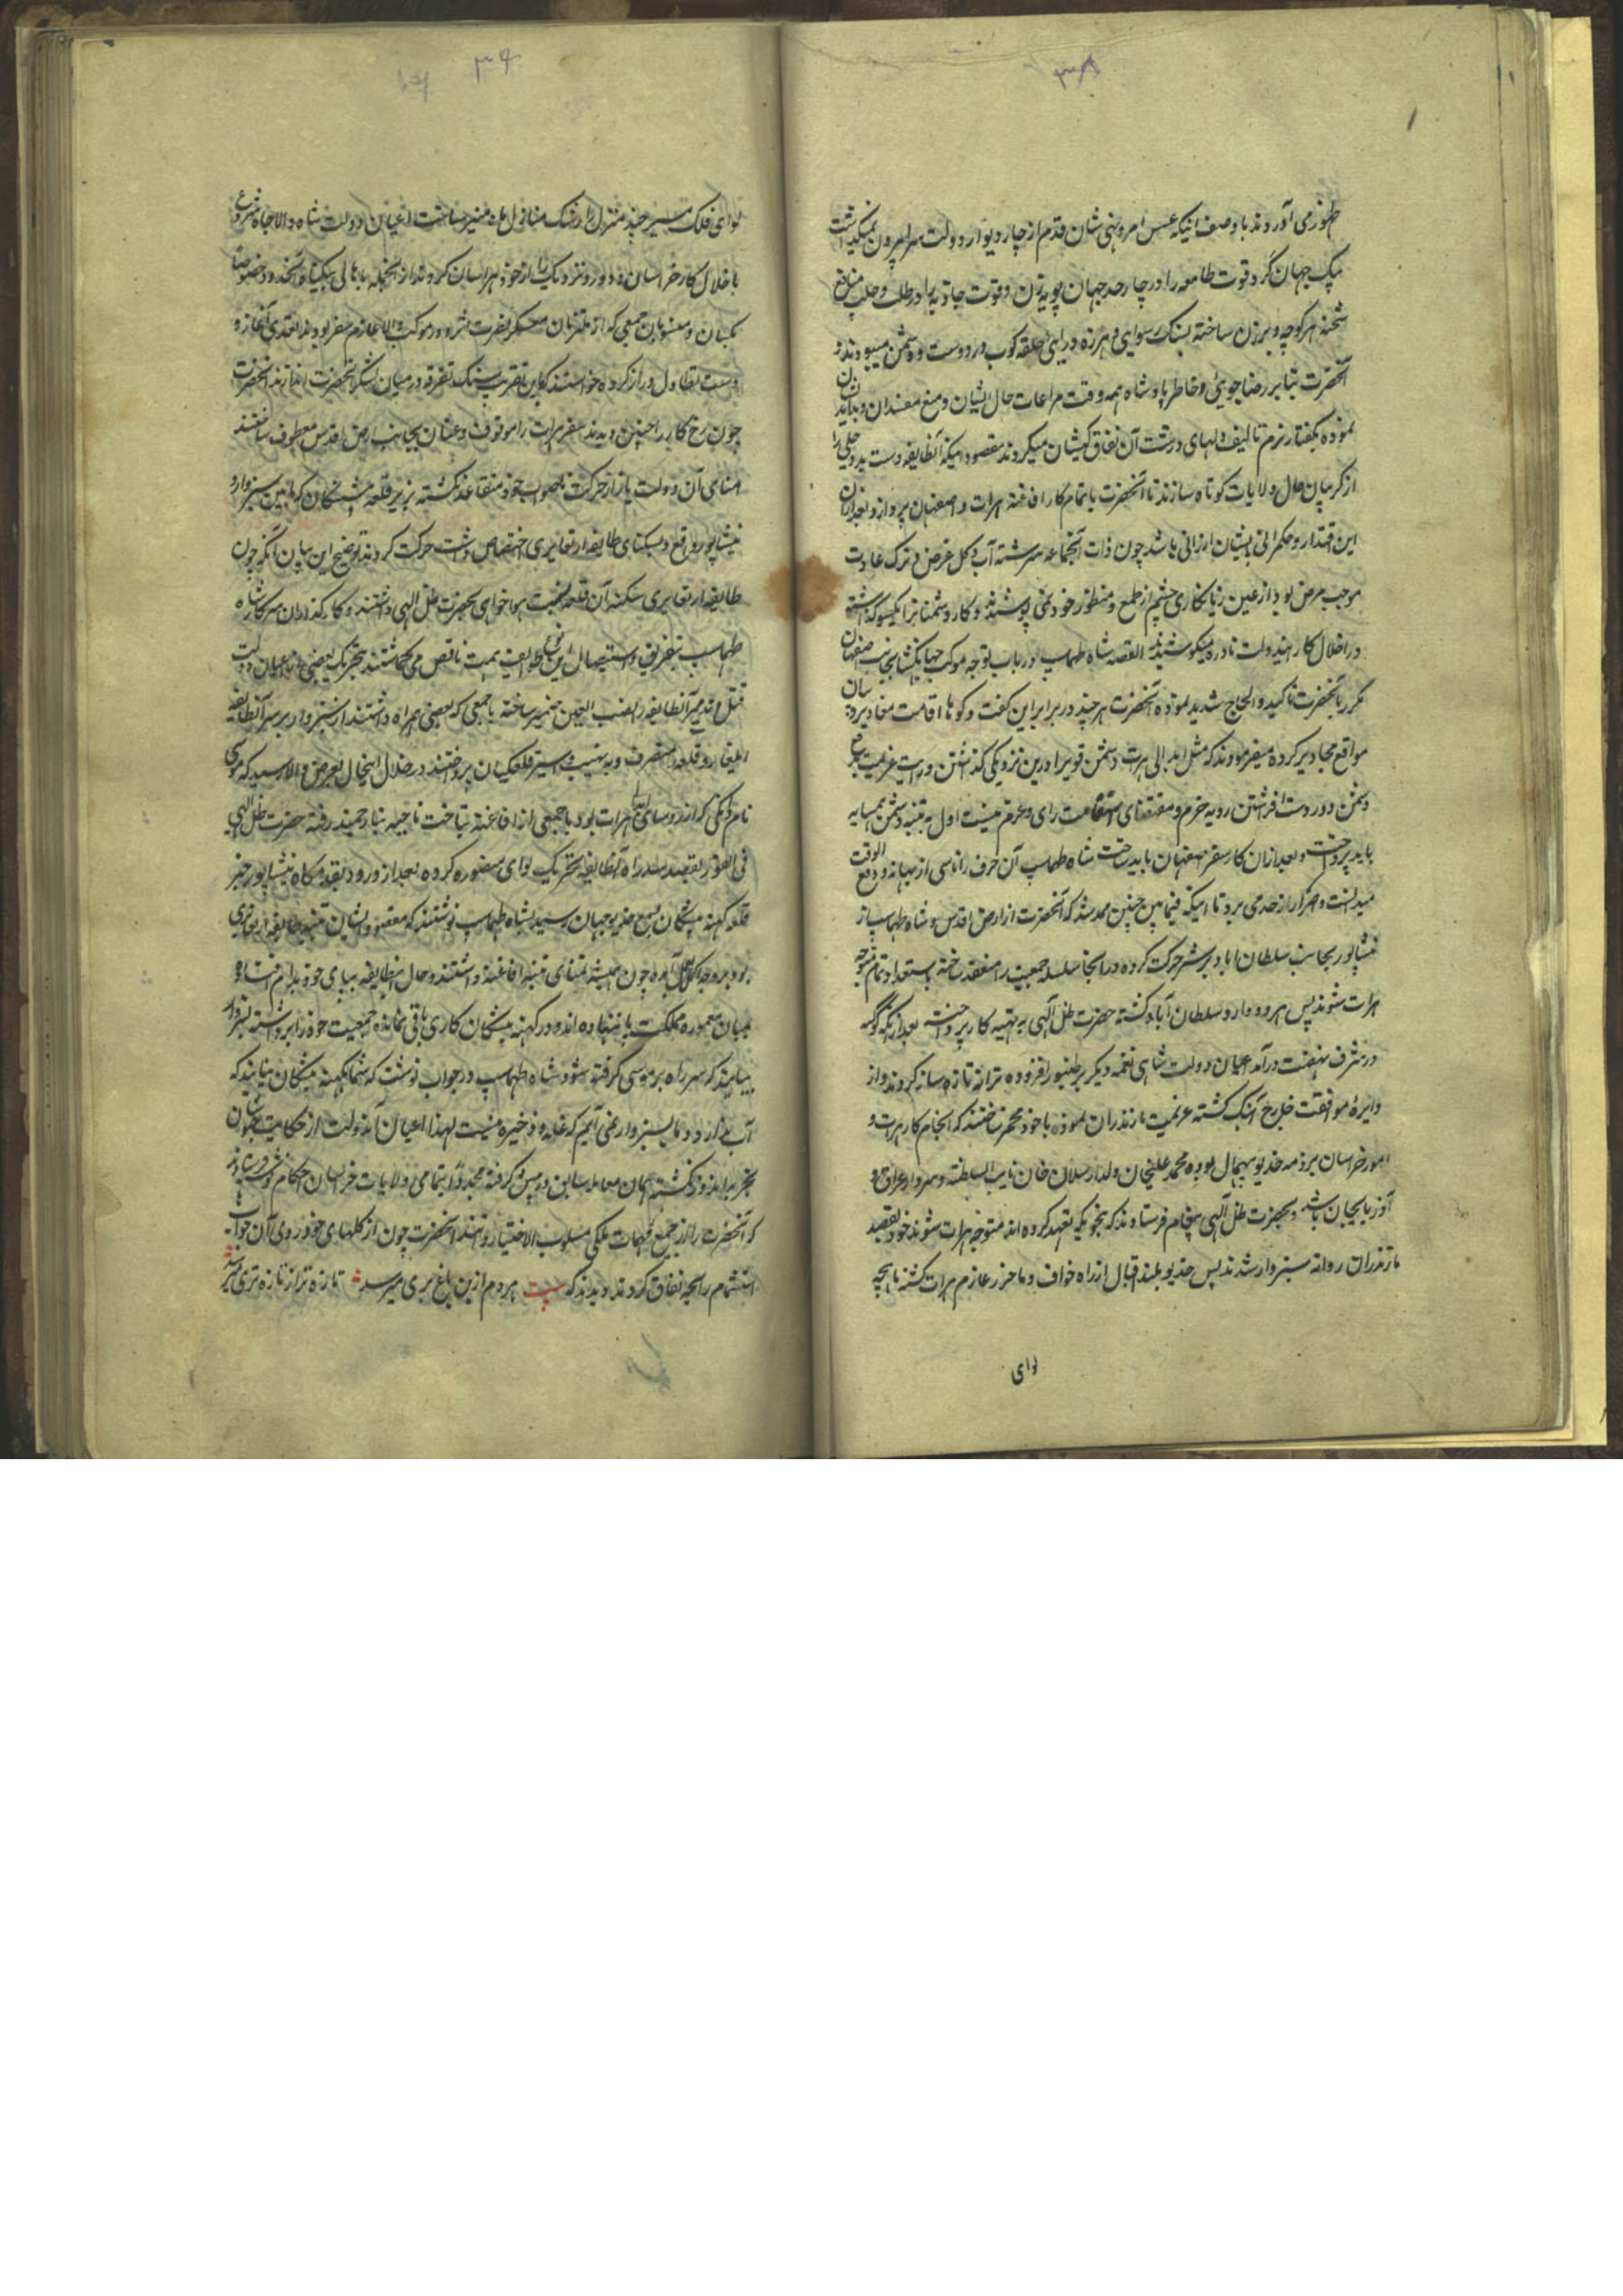 ۳۸
بظهور می آوردند با وصف اینکه عسس امر و نهی شان قدم از چار دیوار دولت سرا بیرون نمیگذاشت
پیک جهان گرد قوت طامعه را در چار حد جهان پویه زن و قوت جاذبه را در طلب و جلب منافع
شحنه هر کوچه و برزن ساخته بسنگ رسوایی و هرزه درایی حلقه کوب در دوست و دشمن میبودند و
آنحضرت بنا بر رضا جویی و خاطر پادشاه همه وقت مراعات حال ایشان و منع مفسدان و بدایند
نموده بگفتار نرم تالیف دلهای درشت آن نفاق کیشان میکردند مقصود اینکه آنطایفه دست ید و حلی را
از گریبان حال ولایات کوتاه سازند تا آنحضرت باتمام کار افاغنه هرات و اصفهان پردازد و بعد از آن
این اقتدار و حکمرانی بایشان ارزانی باشد چون ذات آنجماعه سرشته آب و گل غرض و ترک عادت
موجب مرض بود از عین زیانکاری چشم از طمع و منظور خود نمی پوشیدند و کار دشمنان را یکسو گذاشته
در اخلال کار ایندولت نادره میکوشیدند القصه شاه طهماسب در باب توجه موکب جهانگشا بجانب اصفهان
مکرر بآنحضرت تاکید و الحاح شدید نموده آنحضرت هر چند در برابر این گفت و گوها اقامت معاذیر و بیان
مواقع محاذیر کرده میفرمودند که مثل ابدالی هرات دشمن قویرا درین نزدیکی گذاشتن و رایت عزیمت بدفع
دشمن دور دست افراشتن رویه حزم و مقتضای استقامت رای و عزم نیست اول به تنبیه دشمن همسایه
باید پرداخت و بعد از آن کار سفر اصفهان باید ساخت شاه طهماسب آن حرف را ناشی از بهانه و دفع الوقت
میدانست و اصرار از حد می برد تا اینکه فیمابین چنین ممهد شد که آنحضرت از ارض اقدس و شاه طهماسب از
نیشاپور بجانب سلطان اباد ترشیز حرکت کرده در انجا سلسله جمعیت را منعقد ساخته باستعداد تمام متوجه
هرات شوند پس هر دو وارد سلطان آباد گشته حضرت ظل آلهی به تهیه کار پرداخته بعد از آنکه کوکبه
در شرف نهضت درآمد اعیان دولت شاهی نغمه دیگر بر طنبور افزوده ترانه تازه ساز کردند و از
دایرهٔ موافقت خارج آهنگ گشته عزیمت مازندران نموده با خود مخمر ساختند که انجام کار هرات و
امور خراسان بر ذمه خدیو بیهمال بوده محمد علیخان ولد ارسلان خان نایب السلطنه و سردار عراق و
آذربایجان باشد و بحضرت ظل آلهی پیغام فرستادند که بنحویکه تعهد کرده اند متوجه هرات شوند خود بقصد
مازندران روانه سبزوار شدند پس خدیو بلند اقبال از راه خواف و باخرز عازم هرات گشته ماهچه
لوای
۳۹
لوای فلک مسیر چند منزل را رشک منازل ماه منیر ساخت اعیان دولت شاه والاجاه شروع
باخلال کار خراسان و دور و نزدیک را از خود هراسان کردند از انجمله باهالی بیگناه و خصوصا
بکسان و منسوبان جمعی که از ملتزمان معسکر نصرت اثر و در موکب والا عازم سفر بودند تعدی آغاز و
دست تطاول دراز کرده خواستند که باین تقریب سنگ تفرقه در میان لشکر آنحضرت اندازند آنحضرت
چون رخ کار را چنین دیدند سفر هرات را موقوف و عنان بجانب ارض اقدس معطوف ساختند
امنای آن دولت باز از حرکت ناصواب خود متقاعد نگشته بزیر قلعه مشکان که مابین سبزوار و
نیشاپور واقع و بسکنای طایفه ارتعایری اختصاص داشت حرکت کردند توضیح این بیان آنکه چون
طایفه ارتعایری سکنه آن قلعه نسبت هواخواهی بحضرت ظل الهی داشتند و کارگذاران سرکار شاه
طهماسب بتفریق و استیصال این طوایف همت ناقص می گماشتند بتحریک بعضی از اعیان دولت
قتل و تدمیر آنطایفه را نصب العین ضمیر ساخته با جمعی که بعضی همراه داشتند از سبزوار بر سر آنطایفه
ایلغار و قلعه را متصرف و به نهب و اسر قلعگیان پرداختند در خلال اینحال بعرض والا رسید که موسی
نام دانکی که از رؤسای ابدالی هرات بود با جمعی از افاغنه بتاخت ناحیه بیارجمند رفته حضرت ظل الهی
فی الفور بقصد سد راه آنطایفه تحریک لوای منصوره کرده بعد از ورود بقدمگاه نیشاپور خبر
قلعه کهنه مشکان بسمع خدیو جهان رسید بشاه طهماسب نوشتند که مقصود ایشان تنبیه طایفه ارتعایری
بود بروجه اکمل بعمل آمده چون همیشه تمنای تنبیه افاغنه داشتند و حال انطایفه بپای خود بدام افتاده و
بمیان معموره مملکت پا نهاده اند و در کهنه مشکان کاری باقی نمانده جمعیت خود را برداشته بسبزوار
بیایند که سر راه بر موسی گرفته شود شاه طهماسب در جواب نوشت که شما بکهنه مشکان بیایید که
آب ندارد و ما بسبزوار نمی آئیم که غله و ذخیره نیست لهذا اعیان آندولت از حکایت جبنشان
بخبر نداند و نگذشته همان معامله سابق در پیش گرفته مجددا بتمامی ولایات خراسان احکام نوشته فرستادند
که آنحضرت را از جمیع مهمات ملکی مسلوب الاختیار دانند آنحضرت چون از گلهای خودروی آن جواب
استشمام رایحه نفاق کردند و دیدند که بیت هر دم ازین باغ بری میرسد تازه تر از تازه تری میرسد